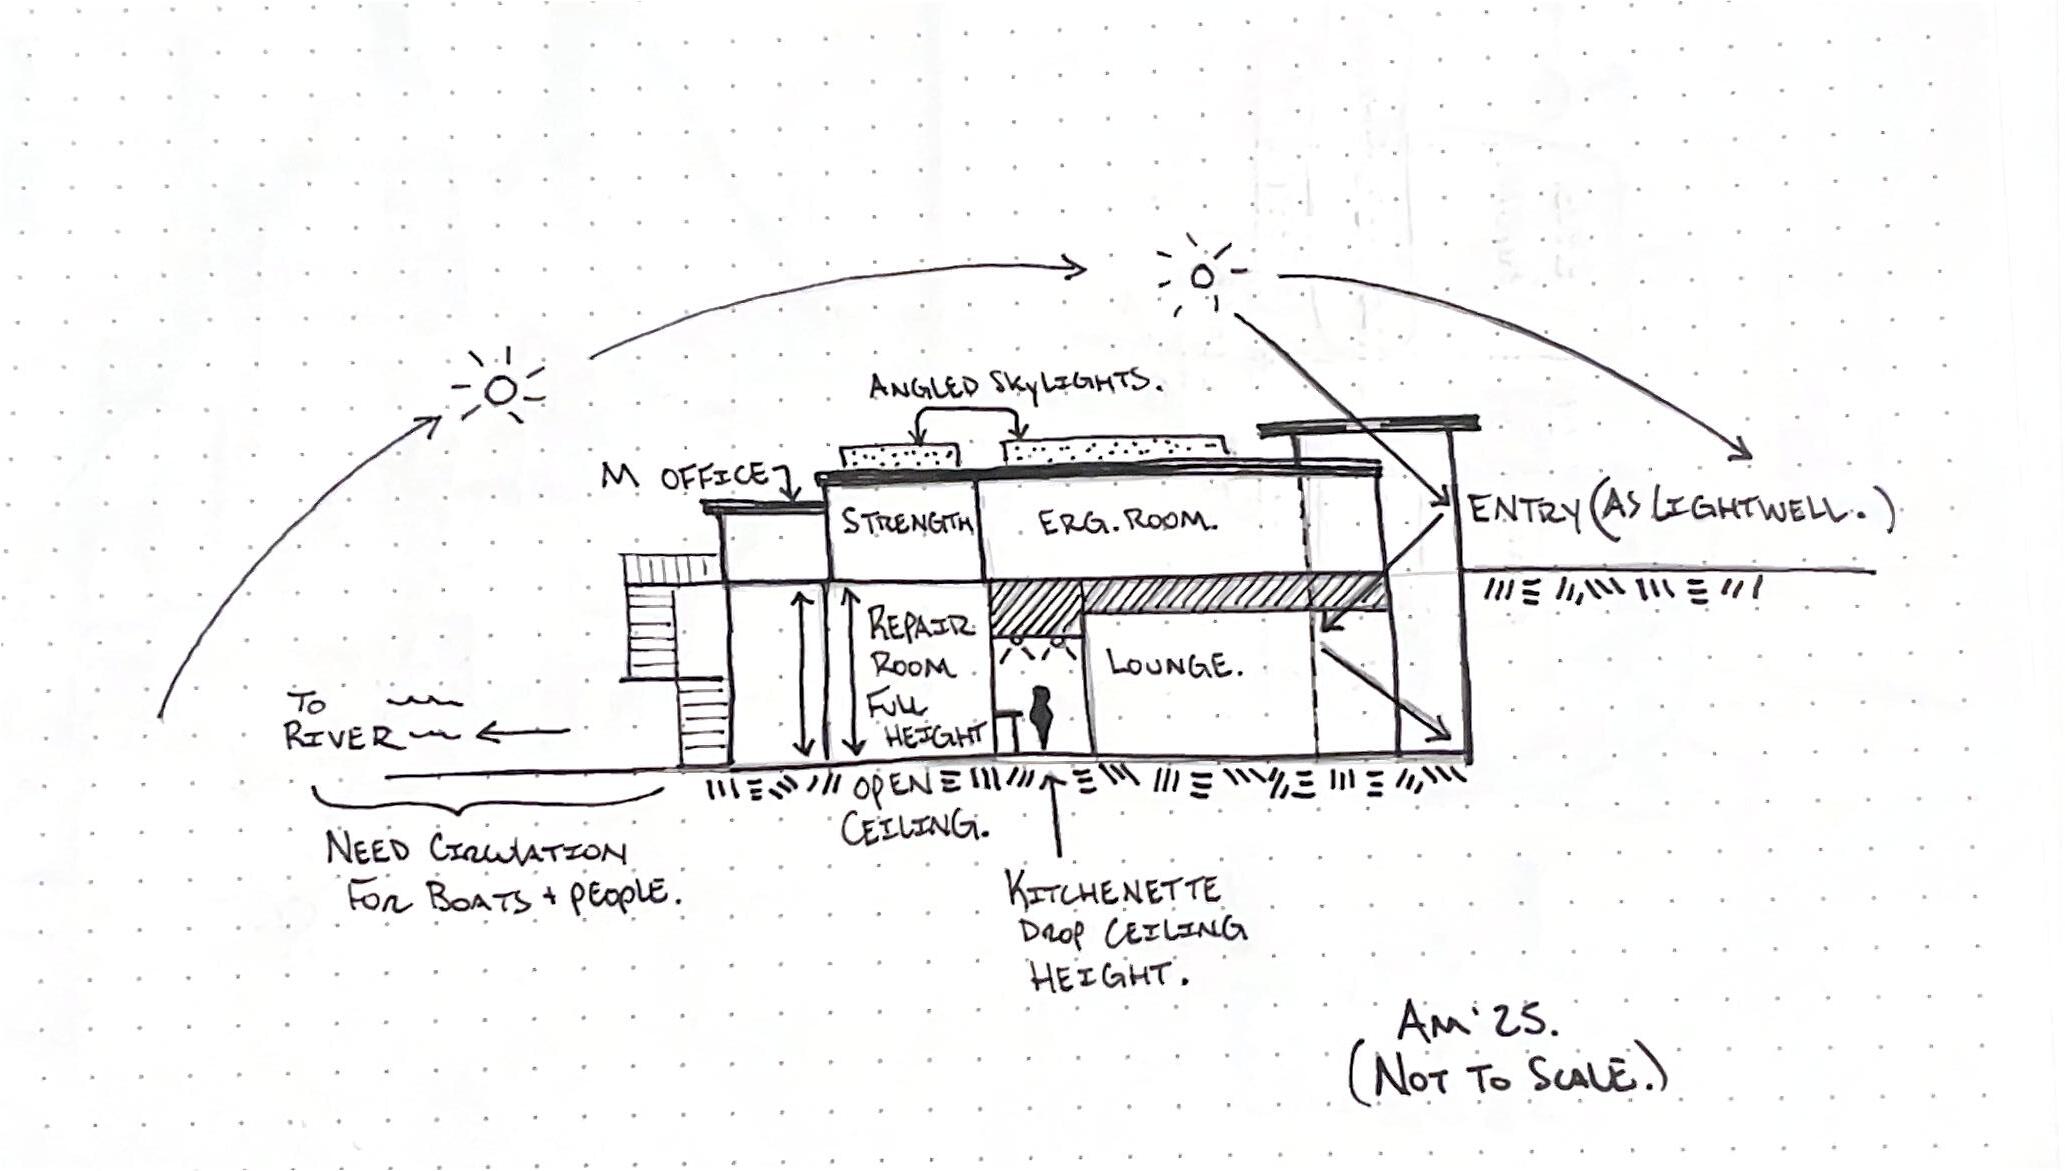 ANGLED SKYLIGHTS.
M OFFICE
STRENGTH
ERG. ROOM.
ENTRY (AS LIGHTWELL.)
REPAIR
ROOM
FULL
HEIGHT
LOUNGE.
TO
RIVER
OPEN
CEILING.
NEED CIRCULATION
FOR BOATS + PEOPLE.
KITCHENETTE
DROP CEILING
HEIGHT.
AM '25.
(NOT TO SCALE.)